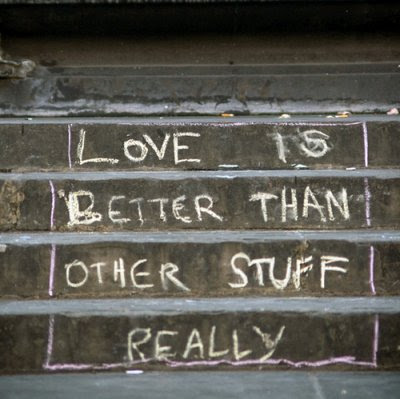 LOVE IS
BETTER THAN
OTHER STUFF
REALLY